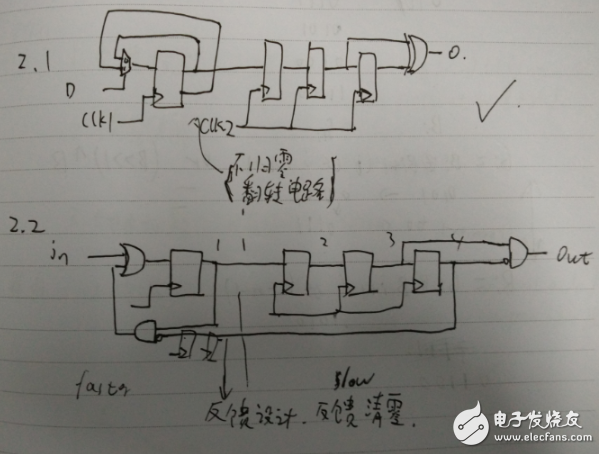 2.1
D
CLK1
CLK2
O.
不归零
翻转电路
2.2
in
1 1 2 3 4
Out
faster
slow
反馈设计. 反馈清零.
电子发烧友
www.elecfans.com